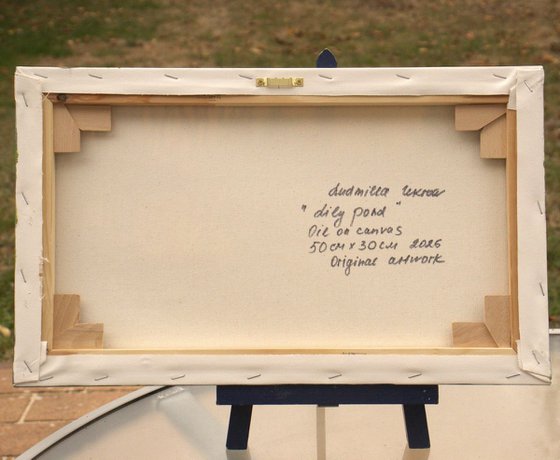 Ludmilla Ukrow
"Lily pond"
Oil on canvas
50cm x 30cm 2026
Original artwork